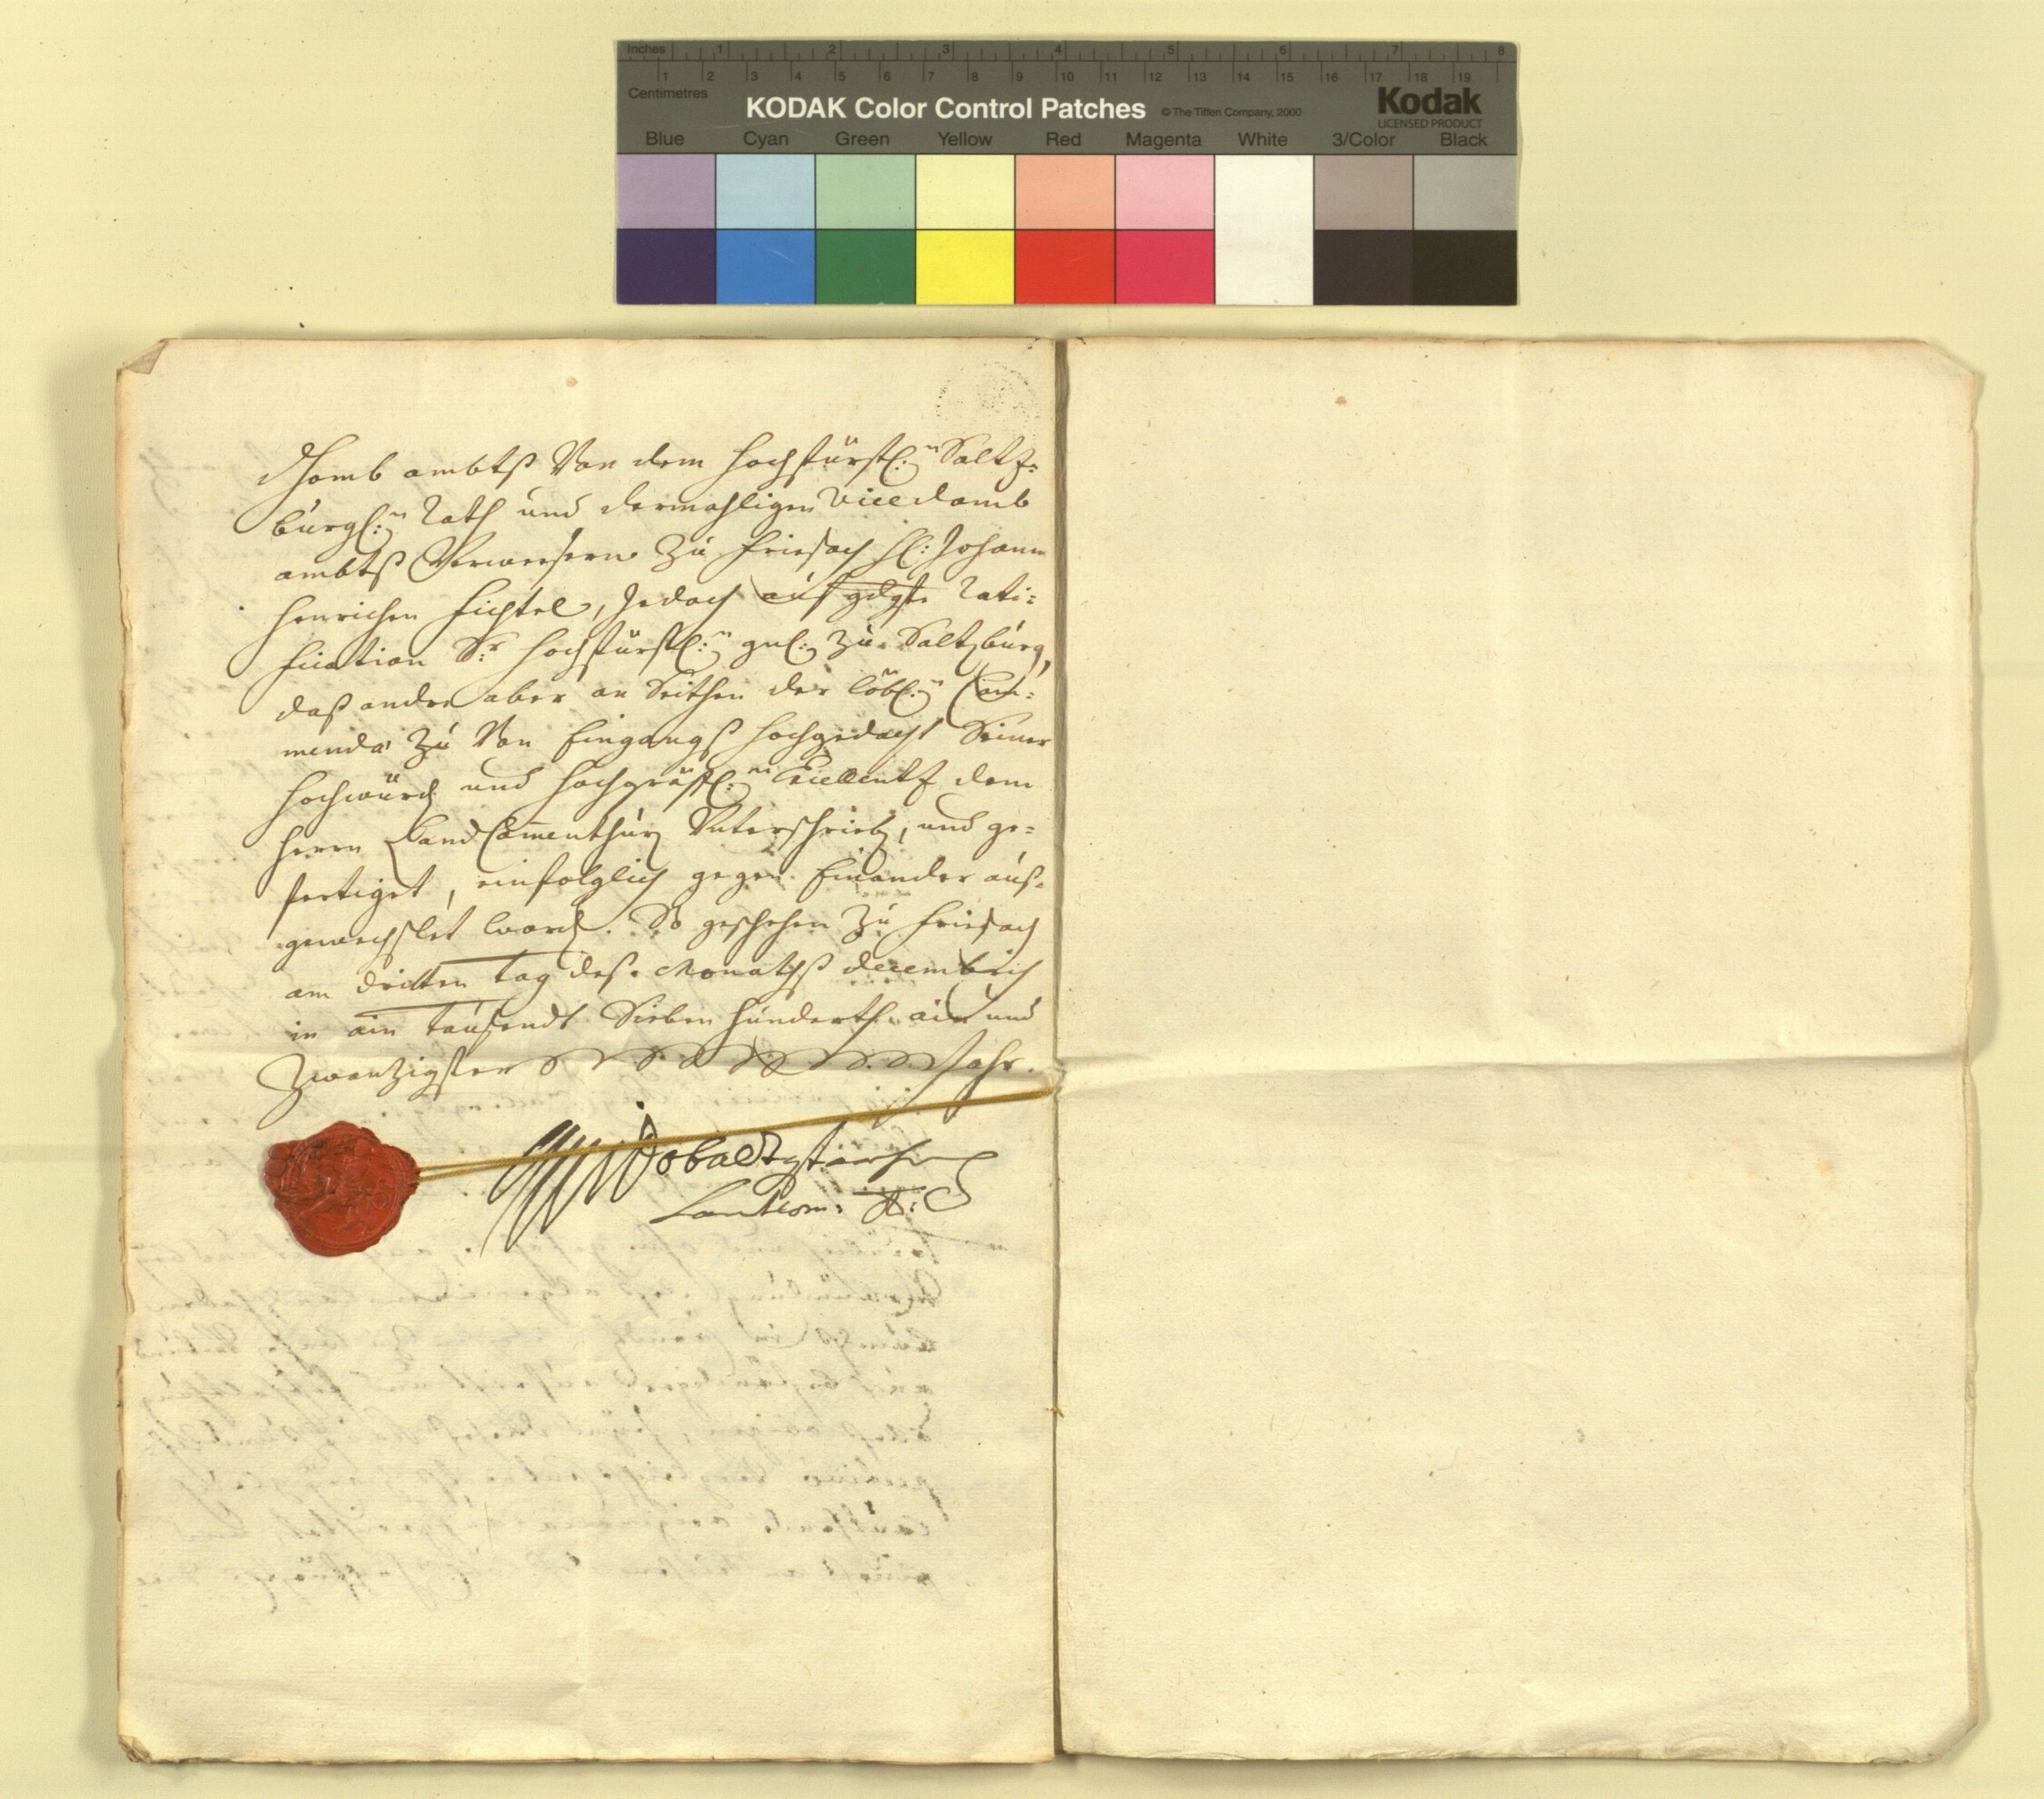 Inches 1 2 3 4 5 6 7 8
1 2 3 4 5 6 7 8 9 10 11 12 13 14 15 16 17 18 19
Centimetres
KODAK Color Control Patches © The Tiffen Company, 2000 Kodak
LICENSED PRODUCT
Blue Cyan Green Yellow Red Magenta White 3/Color Black
dhomb ambtß Von dem hochfürstl:n Saltz=
burgl:n Rath und dermahligen Vicedomb
ambtß Verweesern zu Friesach H: Johann
Henrichen Fichtel, Jedoch auf gdgste Rati=
fication Sr hochfürstl:n gnl: zu Saltzburg,
daß andre aber an Seithen der löbl:n Com=
menda zu Von Eingangß hochgedacht Seiner
Hochwürd und Hochgräfl:n Excellentz dem
Herrn Land Commenthurn Unterschrieb, und ge=
fertiget, einfolglich gegen Einander auß=
gewechslet word. So geschehen zu Friesach
am dritten tag deß Monathß decembris
in ain taußendt Sieben hunderth ain und
zwanzigsten Jahr.